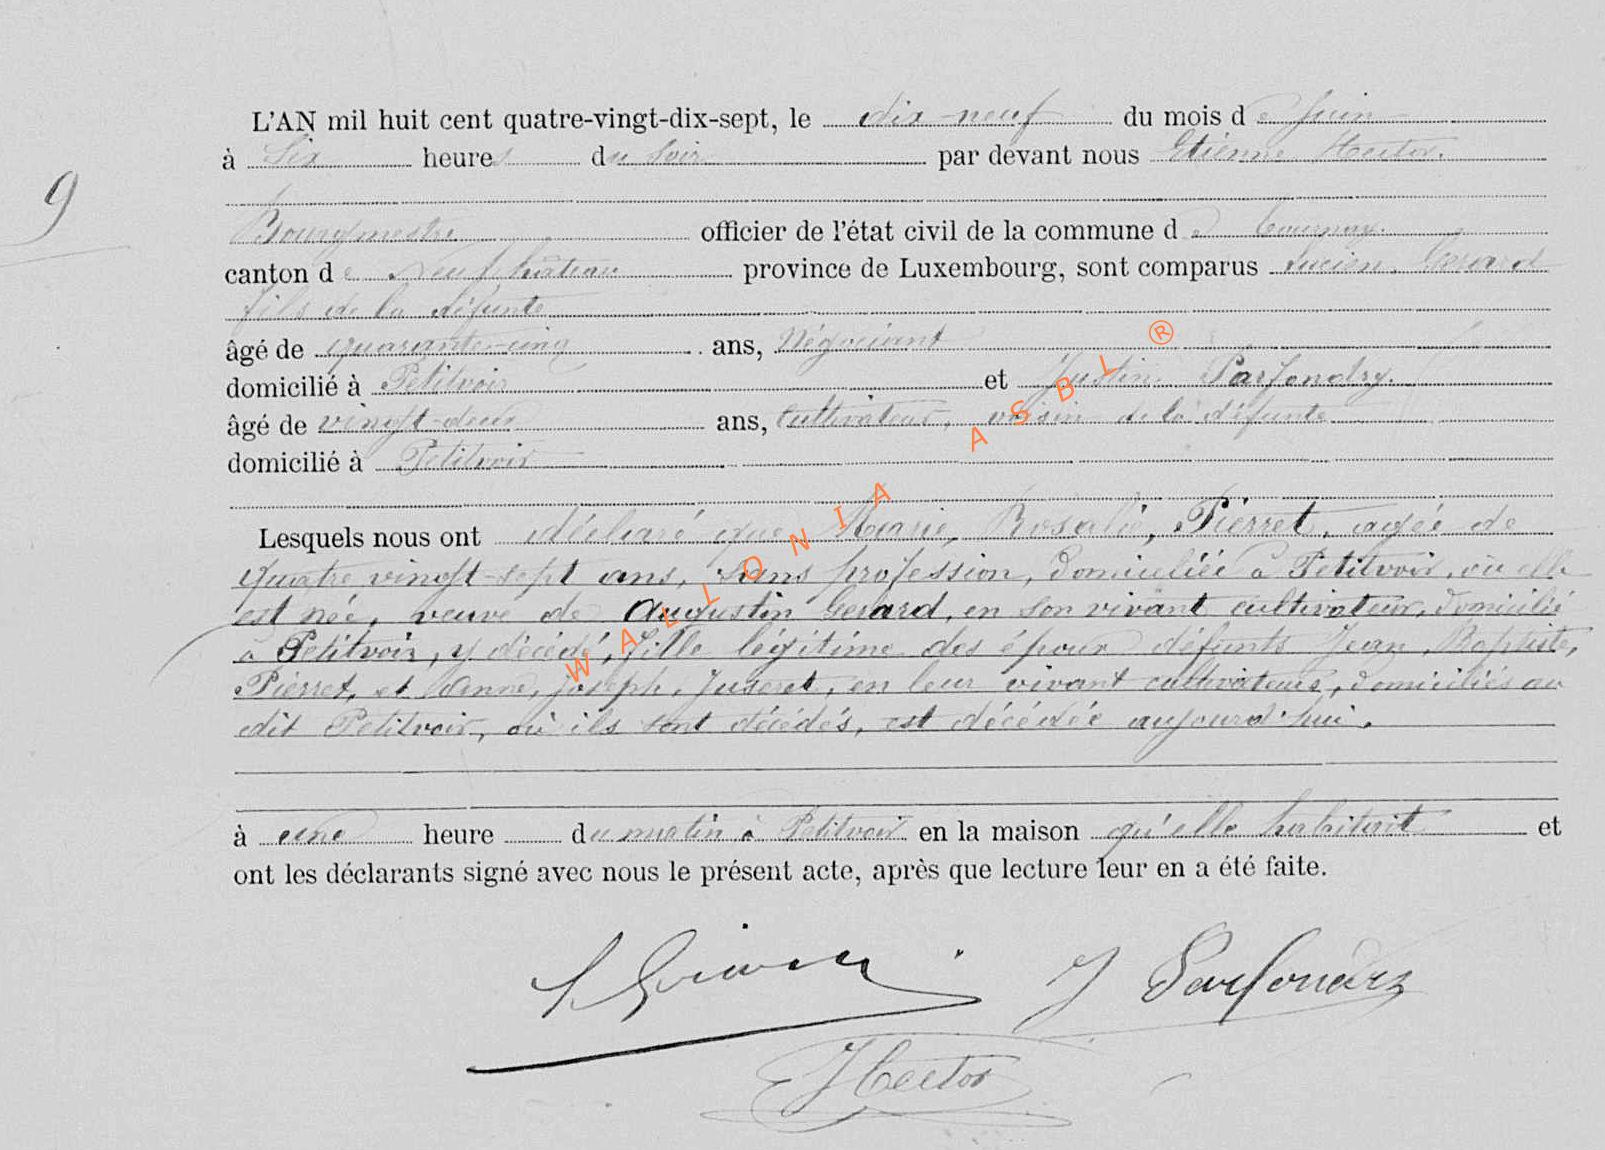 L'AN mil huit cent quatre-vingt-dix-sept, le dix-neuf du mois de Juin
à Six heures du Soir par devant nous Etienne Hector.
9
Bourgmestre officier de l'état civil de la commune de Tournay.
canton de Neufchâteau province de Luxembourg, sont comparus Lucien, Gerard
fils de la défunte
âgé de quarante-cinq ans, Négociant
domicilié à Petitvoir et Justin Parfondry.
âgé de vingt-deux ans, Cultivateur, voisin de la défunte
domicilié à Petitvoir
Lesquels nous ont déclaré que Marie, Rosalie, Pierret, agée de
quatre vingt-sept ans, sans profession, domiciliée à Petitvoir, où elle
est née, veuve de Augustin Gerard, en son vivant cultivateur, domicilié
à Petitvoir, y décédé, fille légitime des époux défunts Jean, Baptiste,
Pierret, et Anne, Joseph, Juseret, en leur vivant cultivateurs, domiciliés au
dit Petitvoir, où ils sont décédés, est décédée aujourd'hui.
à une heure du matin à Petitvoir en la maison qu'elle habitait et
ont les déclarants signé avec nous le présent acte, après que lecture leur en a été faite.
J Parfondry
Hector
WALLONIA ASBL ®